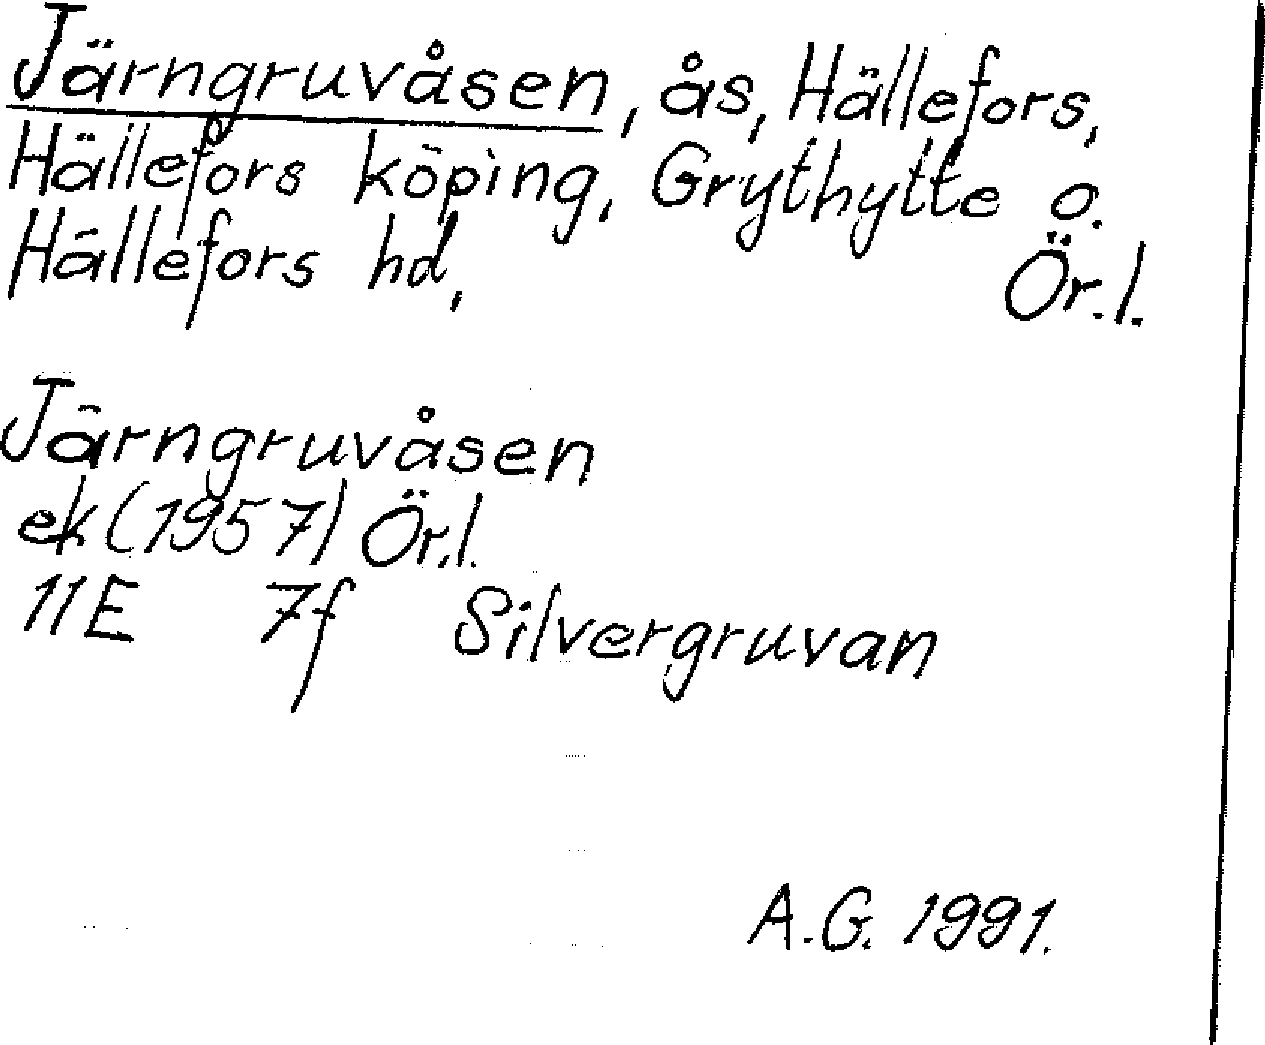 Järngruvåsen, ås, Hällefors,
Hällefors köping, Grythytte o.
Hällefors hd,
Ör.l.
Järngruvåsen
ek (1957) Ör.l.
11E 7f Silvergruvan
A.G. 1991.